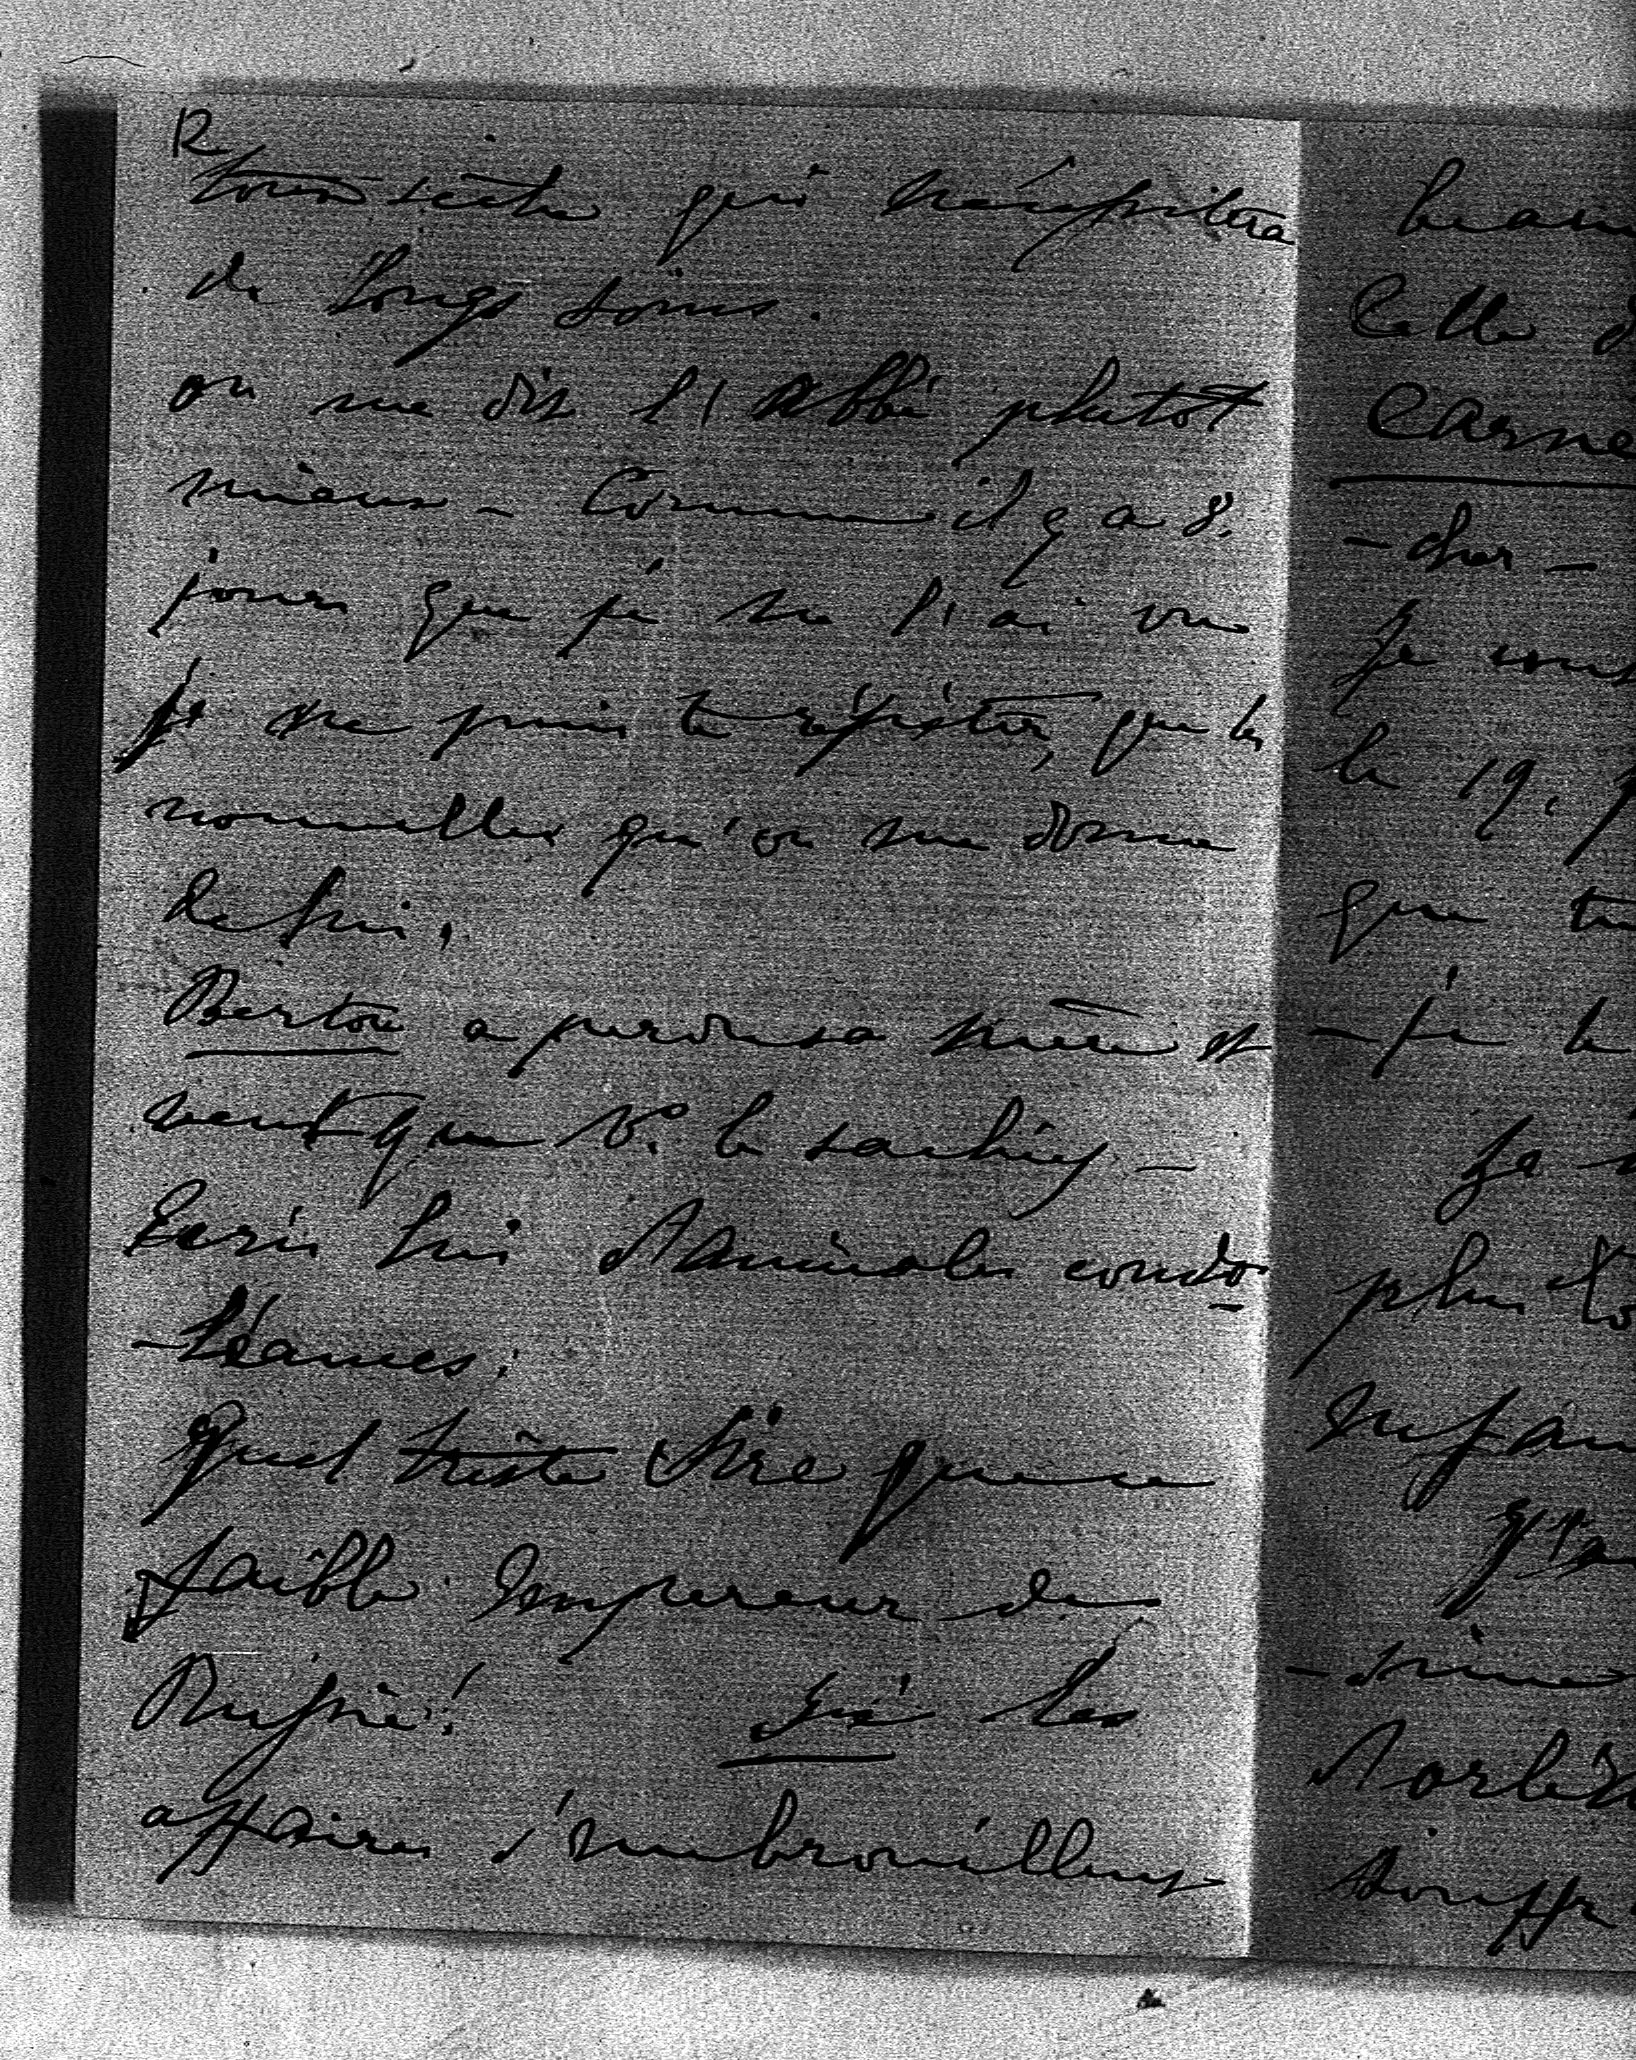 R
qui nécessitera
de longs soins.
on me dit l'Abbé plutot
mieux - Comme il y a 8.
jours que je ne l'ai vu
je ne puis te répéter, que les
nouvelles qu'on me donne
de lui.
Berton a perdu sa mère et
veut que V. le sachiez. -
Ecris lui d'amicales condo-
-léances.
Quel triste Sire que ce
faible Empereur de
Russie! les
affaires s'embrouillent
Celle d
Carne
- cher -
Je vous
le 19, p
que tu
- je te
Je
plus to